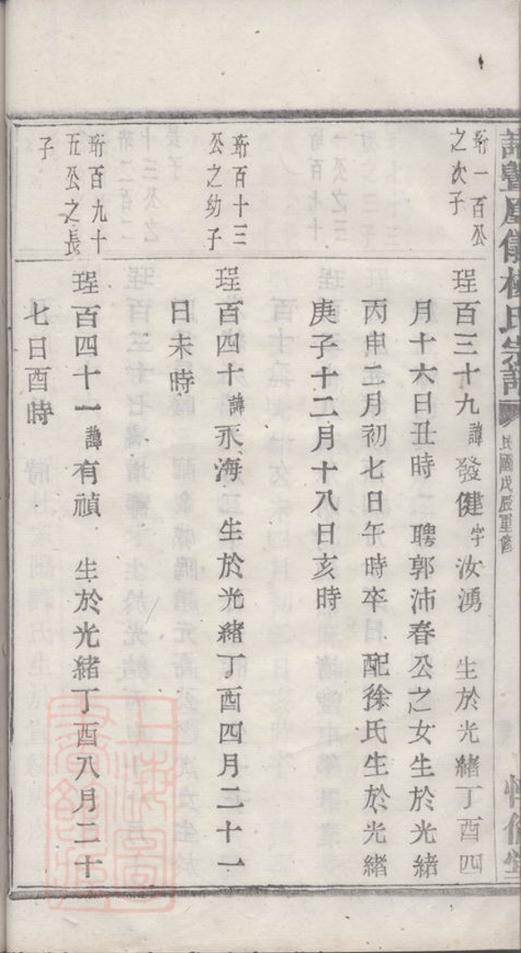 楊氏宗譜
民國戊辰重修
珩一百公
之次子
珵百三十九諱發健字汝湧 生於光緒丁酉四
月十六日丑時 聘郭沛春公之女生於光緒
丙申二月初七日午時卒 配徐氏生於光緒
庚子十二月十八日亥時
珩百十三
公之幼子
珵百四十諱永海 生於光緒丁酉四月二十一
日未時
珩百九十
五公之長
子
珵百四十一諱有禎 生於光緒丁酉八月二十
七日酉時